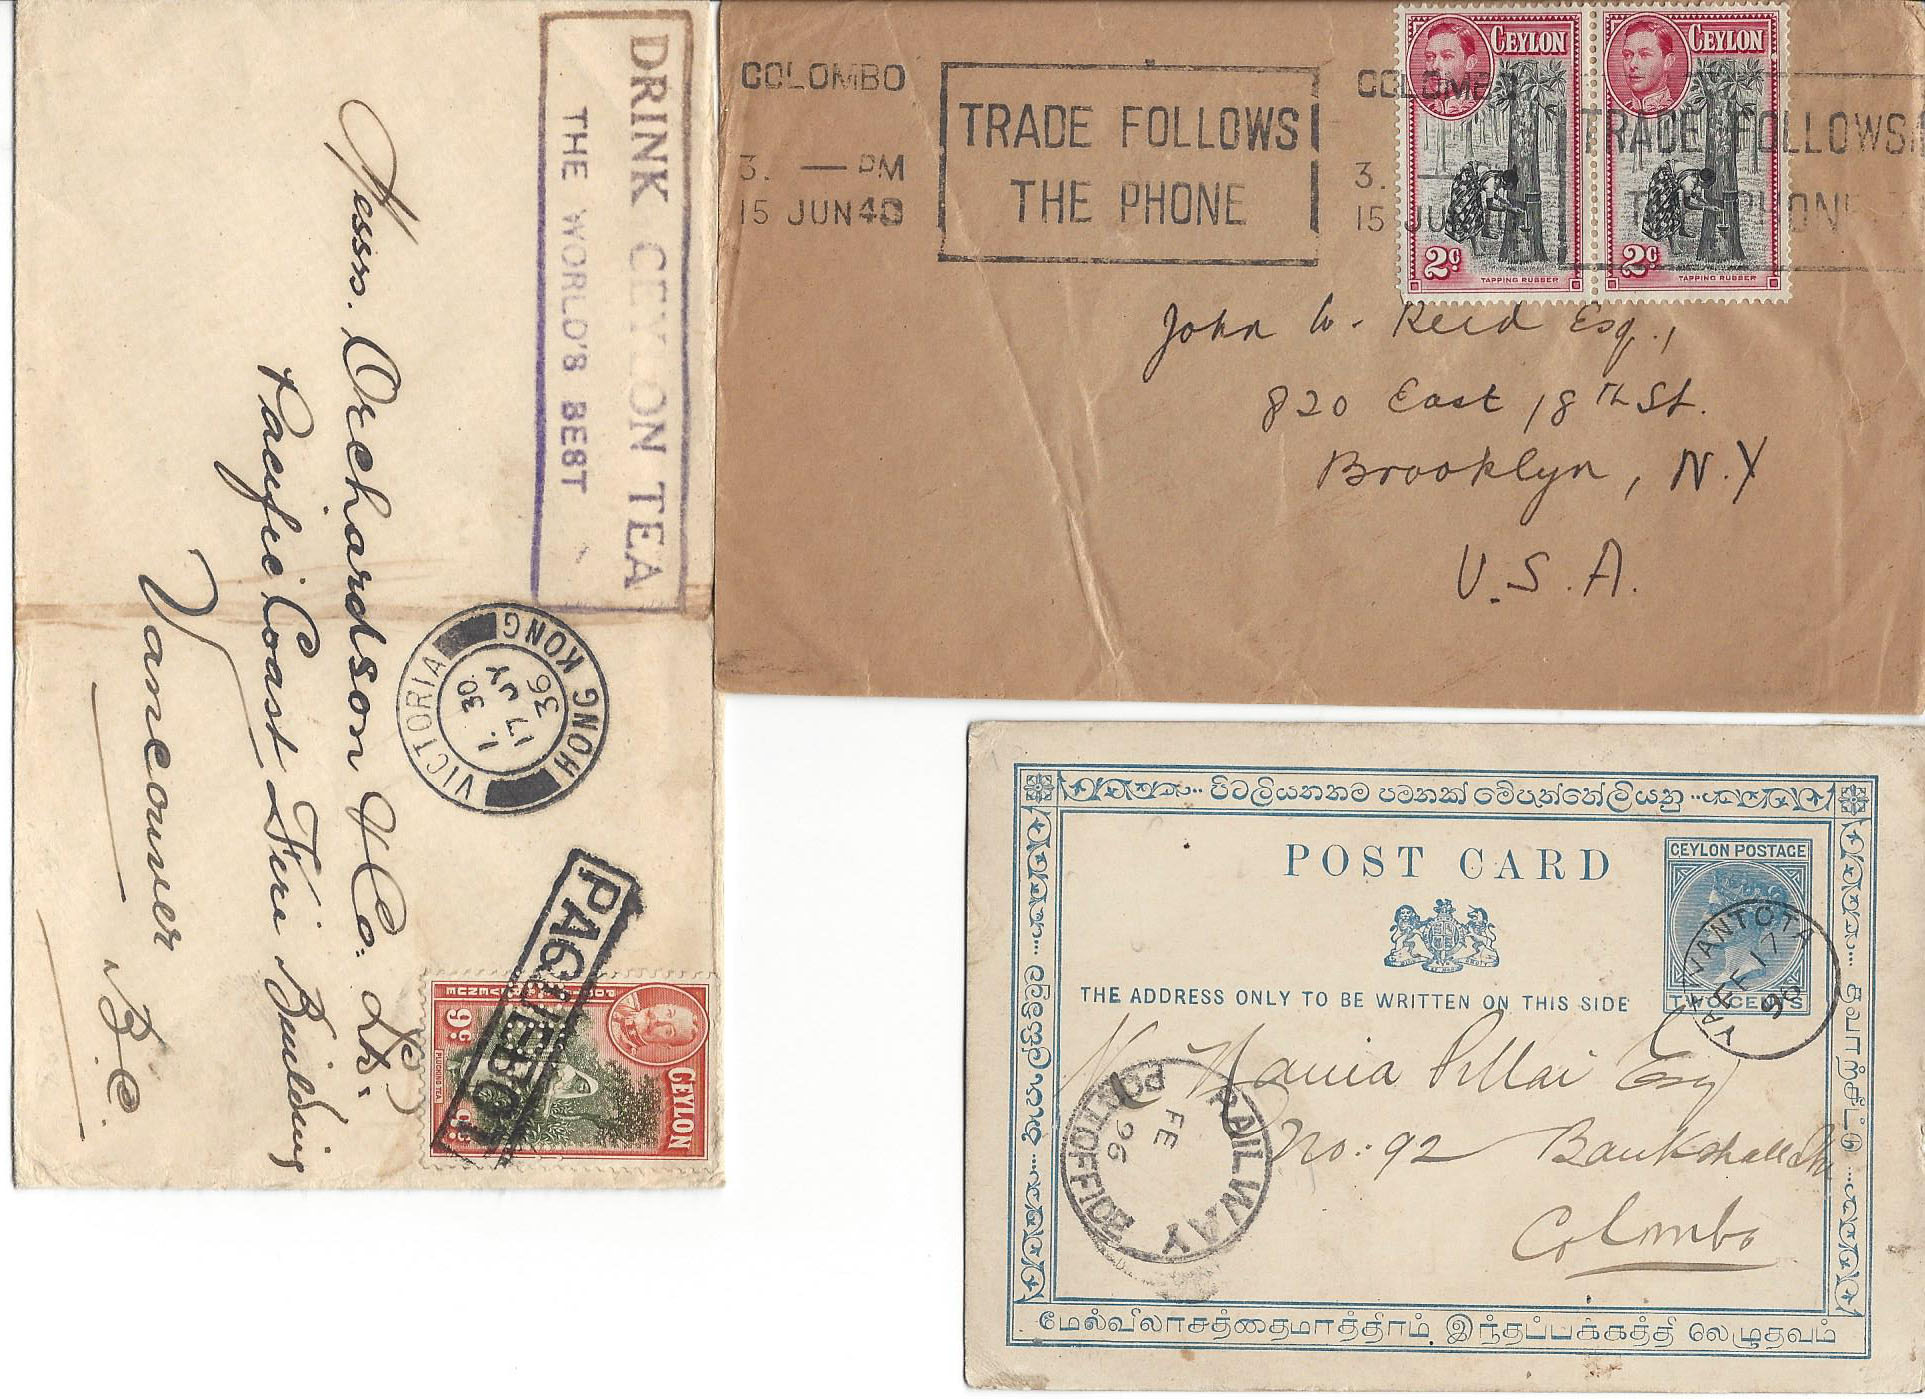 DRINK CEYLON TEA
THE WORLD'S BEST
Messrs. Orchardson & Co. Ltd.
Pacific Coast Fire Building
Vancouver
B.C.
VICTORIA
HONG KONG
1.30
17 JY
36
PAQUEBOT
CEYLON
6c.
6c.
PLUCKING TEA
COLOMBO
3. — PM
15 JUN 48
TRADE FOLLOWS
THE PHONE
COLOMBO
3.
15 JUN
TRADE FOLLOWS
CEYLON
2c
TAPPING RUBBER
CEYLON
2c
TAPPING RUBBER
John W. Reid Esq.,
820 East 18th St.
Brooklyn, N.Y
U.S.A.
POST CARD
CEYLON POSTAGE
TWO CENTS
THE ADDRESS ONLY TO BE WRITTEN ON THIS SIDE
FE 17
96
Pillai Esq
No: 92 Bankshall St
Colombo
RAILWAY
POST OFFICE
FE
96
மேல்விலாசத்தைமாத்திரம் இந்தப்பக்கத்தி லெழுதவும்